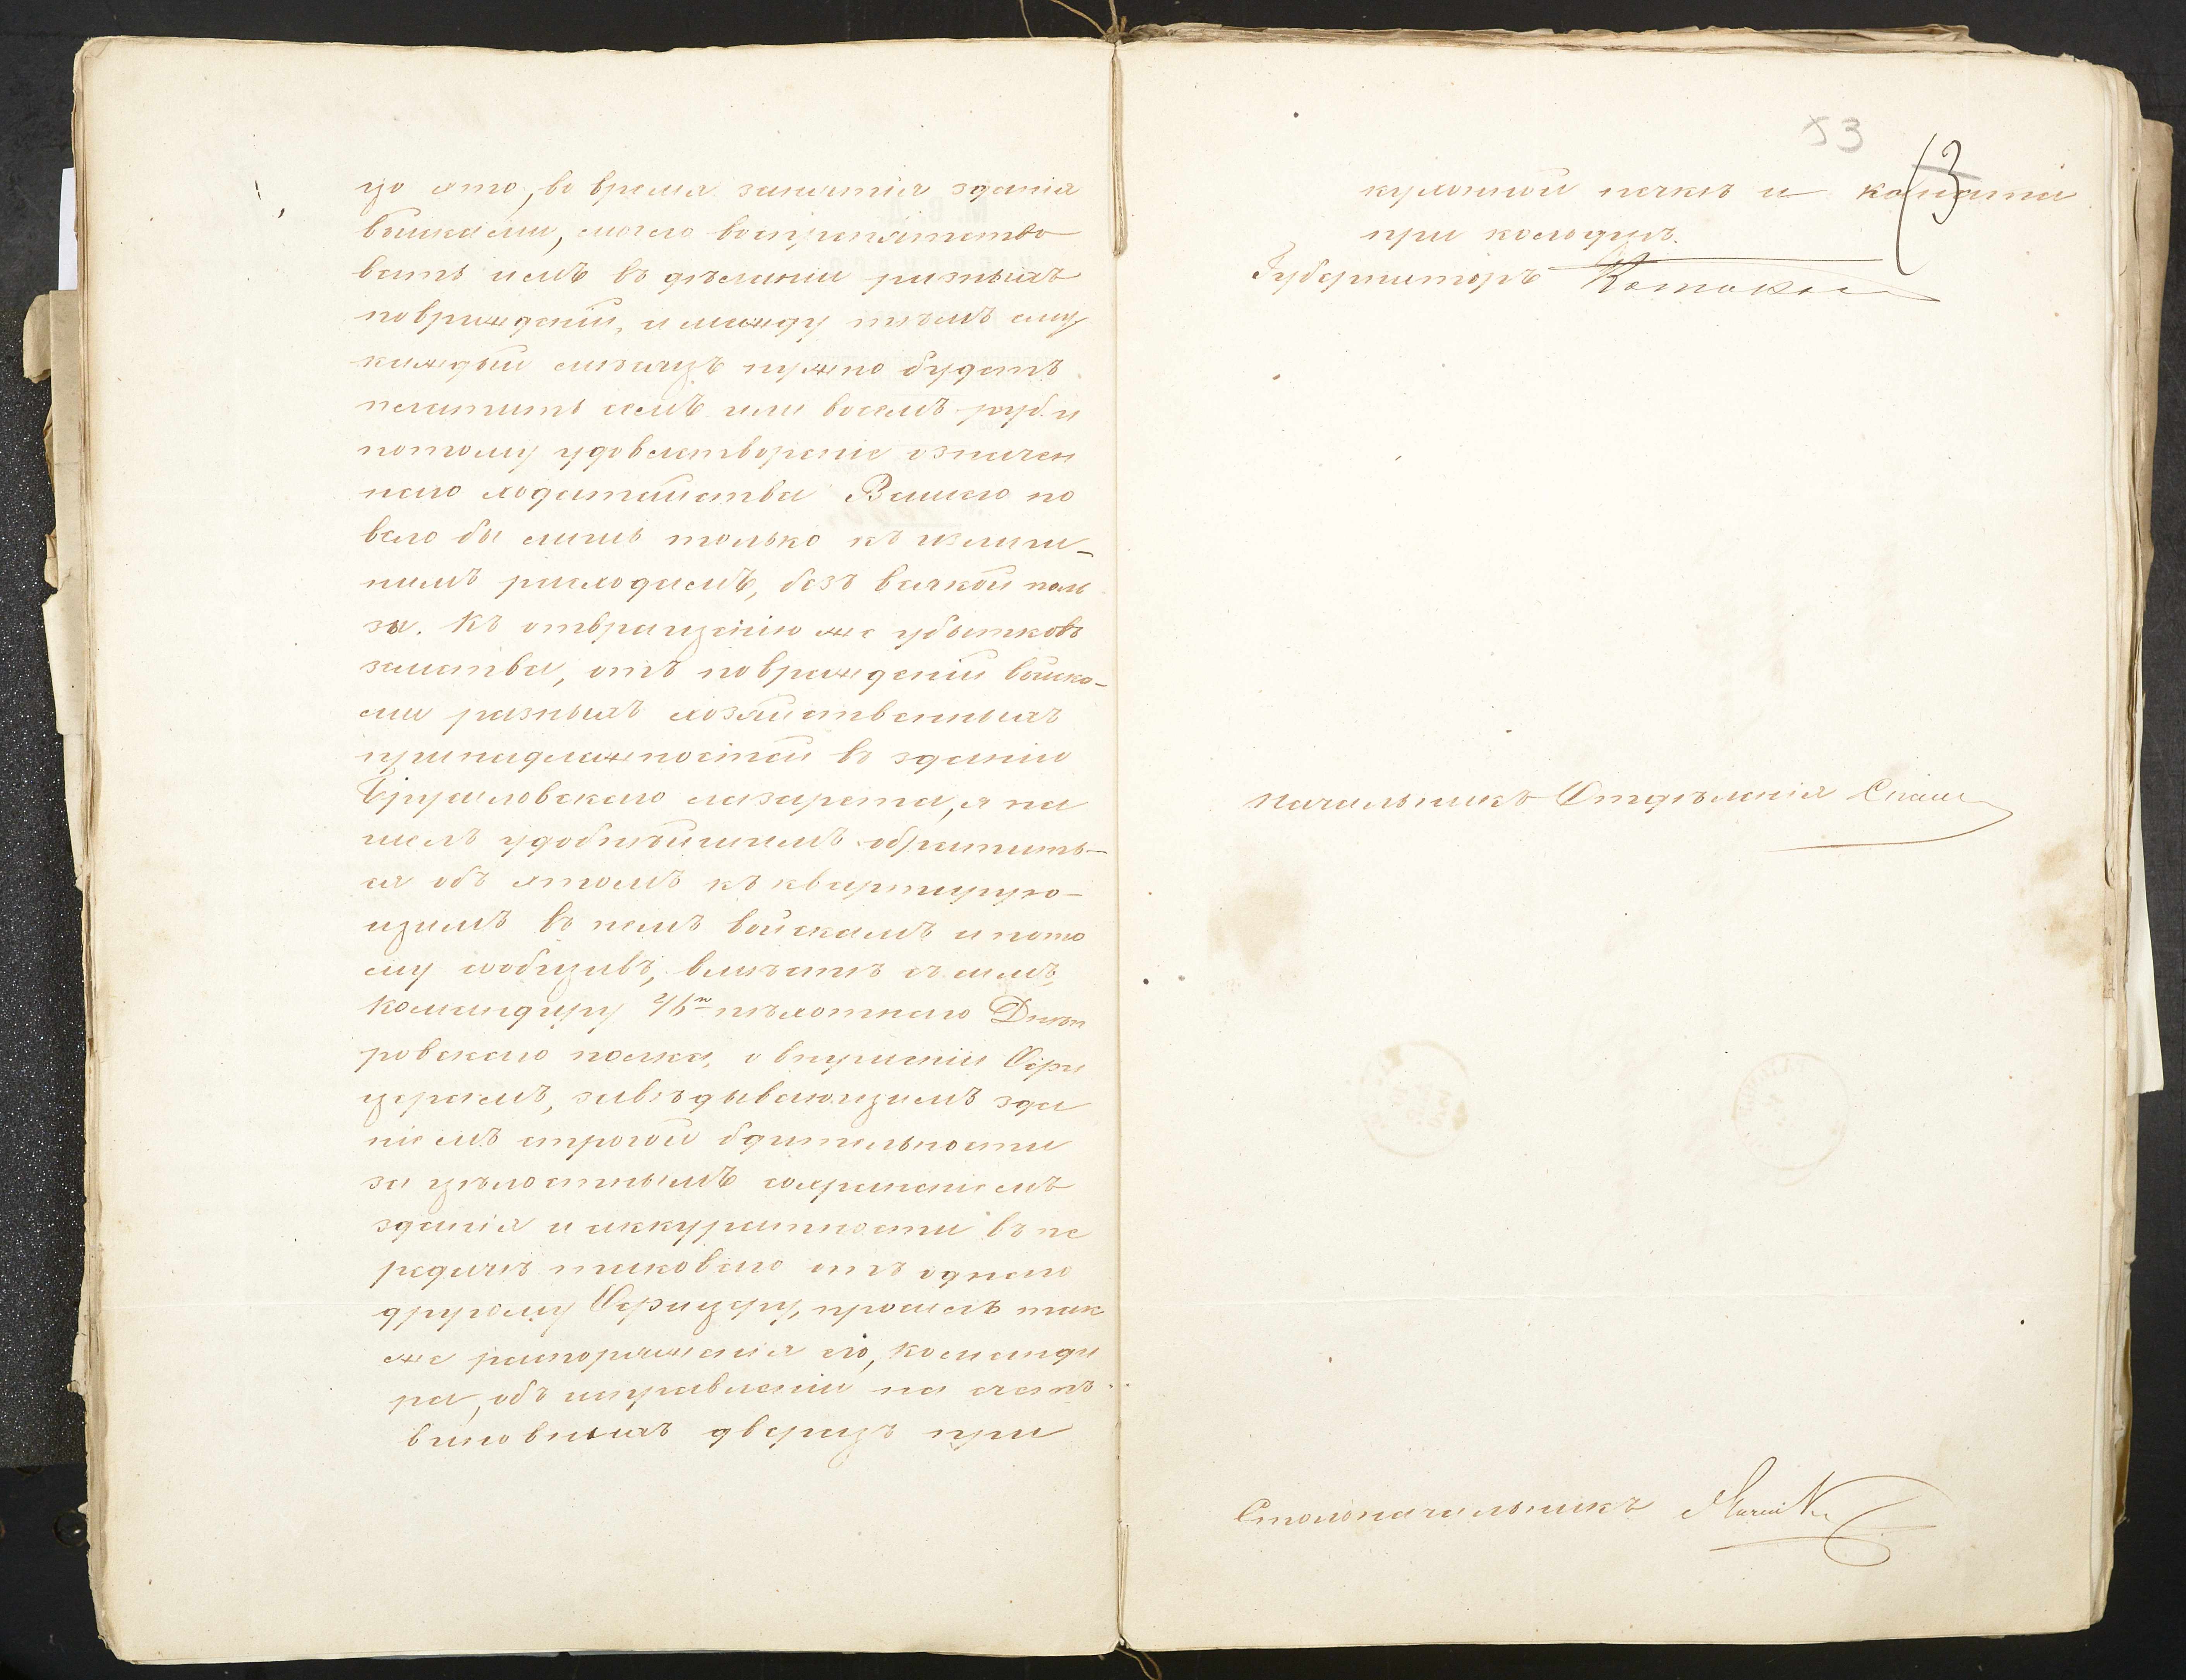 цо это, во время занятія зданія
войсками, могло воспрепятство
вать имъ въ дѣланіи разныхъ
поврежденій, и между тѣмъ ему
каждый мѣсяцъ нужно будетъ
платить семь или восемь руб. и
потому удовлетвореніе означен
наго ходатайства Вашего по
вело бы лишь только къ излиш-
нимъ расходамъ, безъ всякой поль
зы. Къ отвращенію же убытковъ
земства, отъ поврежденій войска-
ми разныхъ хозяйственныхъ
принадлежностей въ зданіи
лазарета, я на
шелъ удобнѣйшимъ обратить-
ся объ этомъ къ квартирую-
щимъ въ немъ войскамъ и пото
му сообщивъ, вмѣстѣ съ симъ,
Командиру 46го пѣхотнаго Днѣп
ровскаго полка, о внушеніи Офи
церамъ, завѣдывающимъ зда
ніемъ строгой бдительности
за цѣлостнымъ сохраненіемъ
зданія и аккуратности въ пе
редачѣ таковаго отъ одного
другому Офицеру, просилъ так
же распоряженія его, Команди
ра, объ исправленіи на счетъ
виновныхъ дверецъ при
53
13
кухонной печкѣ и
при колодцѣ.
Губернаторъ
Начальникъ Отдѣленія
Столоначальникъ